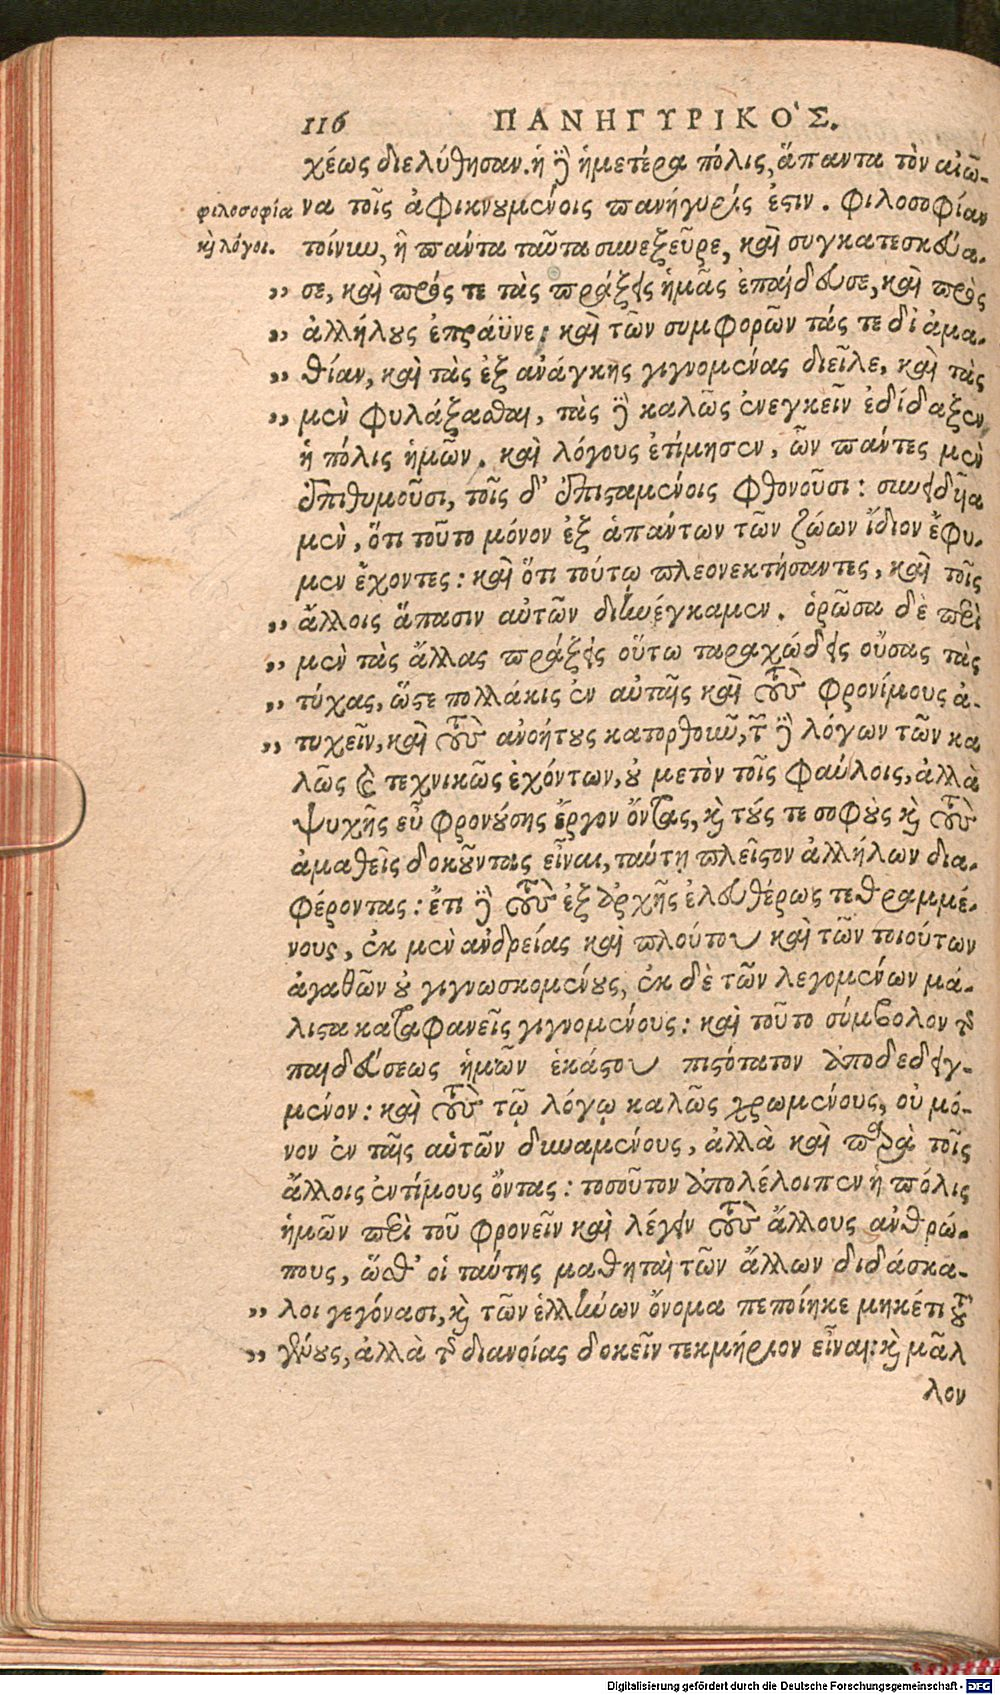 116 ΠΑΝΗΓΥΡΙΚΟ´Σ.
χέως διελύθησαν. ἡ δὲ ἡμετέρα πόλις, ἅπαντα τὸν αἰῶ-
φιλοσοφία
να τοῖς ἀφικνουμένοις πανήγυρίς ἐστιν. Φιλοσοφίαν
καὶ λόγοι.
τοίνυν, ἣ πάντα ταῦτα συνεξεῦρε, καὶ συγκατεσκεύα-
„ σε, καὶ πρός τε τὰς πράξεις ἡμᾶς ἐπαίδευσε, καὶ πρὸς
„ ἀλλήλους ἐπράϋνε: καὶ τῶν συμφορῶν τάς τε δι᾽ ἀμα-
„ θίαν, καὶ τὰς ἐξ ἀνάγκης γιγνομένας διεῖλε, καὶ τὰς
„ μὲν φυλάξασθαι, τὰς δὲ καλῶς ἐνεγκεῖν ἐδίδαξεν
ἡ πόλις ἡμῶν. καὶ λόγους ἐτίμησεν, ὧν πάντες μὲν
ἐπιθυμοῦσι, τοῖς δ᾽ ἐπισταμένοις φθονοῦσι: συνειδυῖα
μὲν, ὅτι τοῦτο μόνον ἐξ ἁπάντων τῶν ζώων ἴδιον ἔφυ-
μεν ἔχοντες: καὶ ὅτι τούτῳ πλεονεκτήσαντες, καὶ τοῖς
„ ἄλλοις ἅπασιν αὐτῶν διηνέγκαμεν. ὁρῶσα δὲ περὶ
„ μὲν τὰς ἄλλας πράξεις οὕτω ταραχώδεις οὔσας τὰς
„ τύχας, ὥστε πολλάκις ἐν αὐταῖς καὶ τοὺς φρονίμους ἀ-
„ τυχεῖν, καὶ τοὺς ἀνοήτους κατορθοῦν, τῶν δὲ λόγων τῶν κα
λῶς καὶ τεχνικῶς ἐχόντων, οὐ μετὸν τοῖς φαύλοις, ἀλλὰ
ψυχῆς εὖ φρονούσης ἔργον ὄντας, καὶ τούς τε σοφοὺς καὶ τοὺς
ἀμαθεῖς δοκοῦντας εἶναι, ταύτῃ πλεῖστον ἀλλήλων δια-
φέροντας: ἔτι δὲ τοὺς ἐξ ἀρχῆς ἐλευθέρως τεθραμμέ-
νους, ἐκ μὲν ἀνδρείας καὶ πλούτου καὶ τῶν τοιούτων
ἀγαθῶν οὐ γιγνωσκομένους, ἐκ δὲ τῶν λεγομένων μά-
λιστα καταφανεῖς γιγνομένους: καὶ τοῦτο σύμβολον τῆς
παιδεύσεως ἡμῶν ἑκάστου πιστότατον ἀποδεδειγ-
μένον: καὶ τοὺς τῷ λόγῳ καλῶς χρωμένους, οὐ μό-
νον ἐν ταῖς αὑτῶν δυναμένους, ἀλλὰ καὶ παρὰ τοῖς
ἄλλοις ἐντίμους ὄντας: τοσοῦτον ἀπολέλοιπεν ἡ πόλις
ἡμῶν περὶ τοῦ φρονεῖν καὶ λέγειν τοὺς ἄλλους ἀνθρώ-
πους, ὥσθ᾽ οἱ ταύτης μαθηταὶ τῶν ἄλλων διδάσκα-
„ λοι γεγόνασι, καὶ τῶν ἑλλήνων ὄνομα πεποίηκε μηκέτι τοῦ
„ γένους, ἀλλὰ τῆς διανοίας δοκεῖν τεκμήριον εἶναι: καὶ μᾶλ
λον
Digitalisierung gefördert durch die Deutsche Forschungsgemeinschaft - DFG